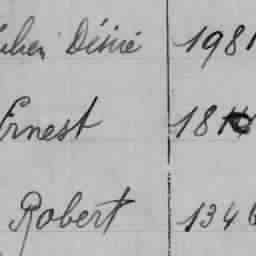 Désiré 1981
Ernest 18
Robert 1346